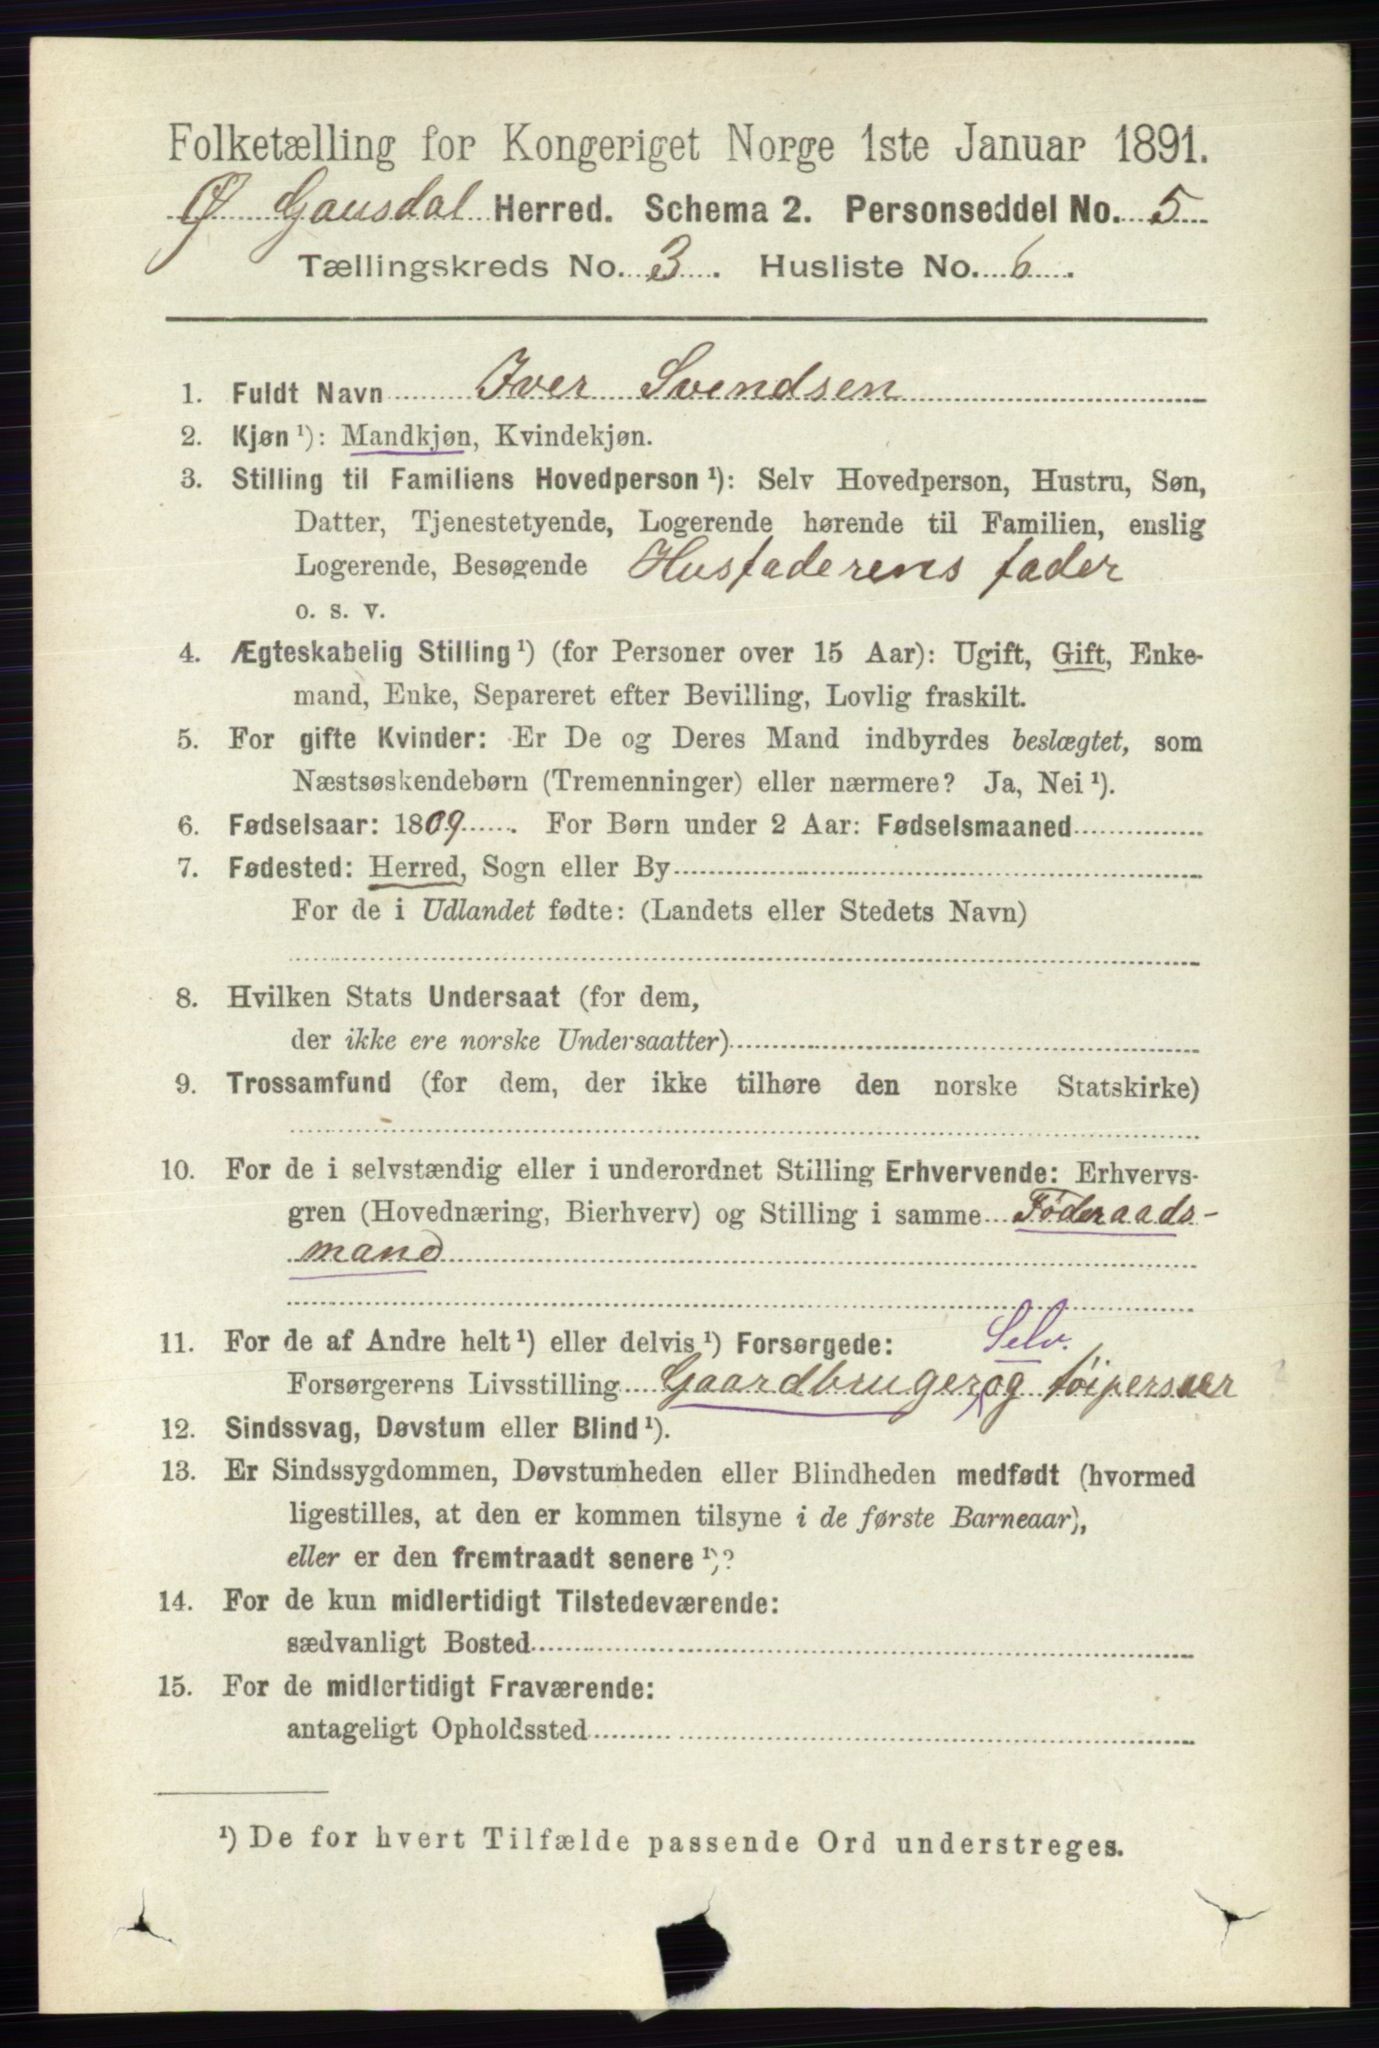 Folketælling for Kongeriget Norge 1ste Januar 1891.
Ø Gausdal Herred. Schema 2. Personseddel No. 5
Tællingskreds No. 3. Husliste No. 6.
1. Fuldt Navn Iver Svendsen
2. Kjøn ¹): Mandkjøn, Kvindekjøn.
3. Stilling til Familiens Hovedperson ¹): Selv Hovedperson, Hustru, Søn,
Datter, Tjenestetyende, Logerende hørende til Familien, enslig
Logerende, Besøgende Husfaderens fader
o. s. v.
4. Ægteskabelig Stilling ¹) (for Personer over 15 Aar): Ugift, Gift, Enke-
mand, Enke, Separeret efter Bevilling, Lovlig fraskilt.
5. For gifte Kvinder: Er De og Deres Mand indbyrdes beslægtet, som
Næstsøskendebørn (Tremenninger) eller nærmere? Ja, Nei ¹).
6. Fødselsaar: 1809. For Børn under 2 Aar: Fødselsmaaned
7. Fødested: Herred, Sogn eller By
For de i Udlandet fødte: (Landets eller Stedets Navn)
8. Hvilken Stats Undersaat (for dem,
der ikke ere norske Undersaatter)
9. Trossamfund (for dem, der ikke tilhøre den norske Statskirke)
10. For de i selvstændig eller i underordnet Stilling Erhvervende: Erhvervs-
gren (Hovednæring, Bierhverv) og Stilling i samme Føderaads-
mand
11. For de af Andre helt ¹) eller delvis ¹) Forsørgede: Selv.
Forsørgerens Livsstilling Gaardbruger og
12. Sindssvag, Døvstum eller Blind ¹).
13. Er Sindssygdommen, Døvstumheden eller Blindheden medfødt (hvormed
ligestilles, at den er kommen tilsyne i de første Barneaar),
eller er den fremtraadt senere ¹)?
14. For de kun midlertidigt Tilstedeværende:
sædvanligt Bosted
15. For de midlertidigt Fraværende:
antageligt Opholdssted
¹) De for hvert Tilfælde passende Ord understreges.